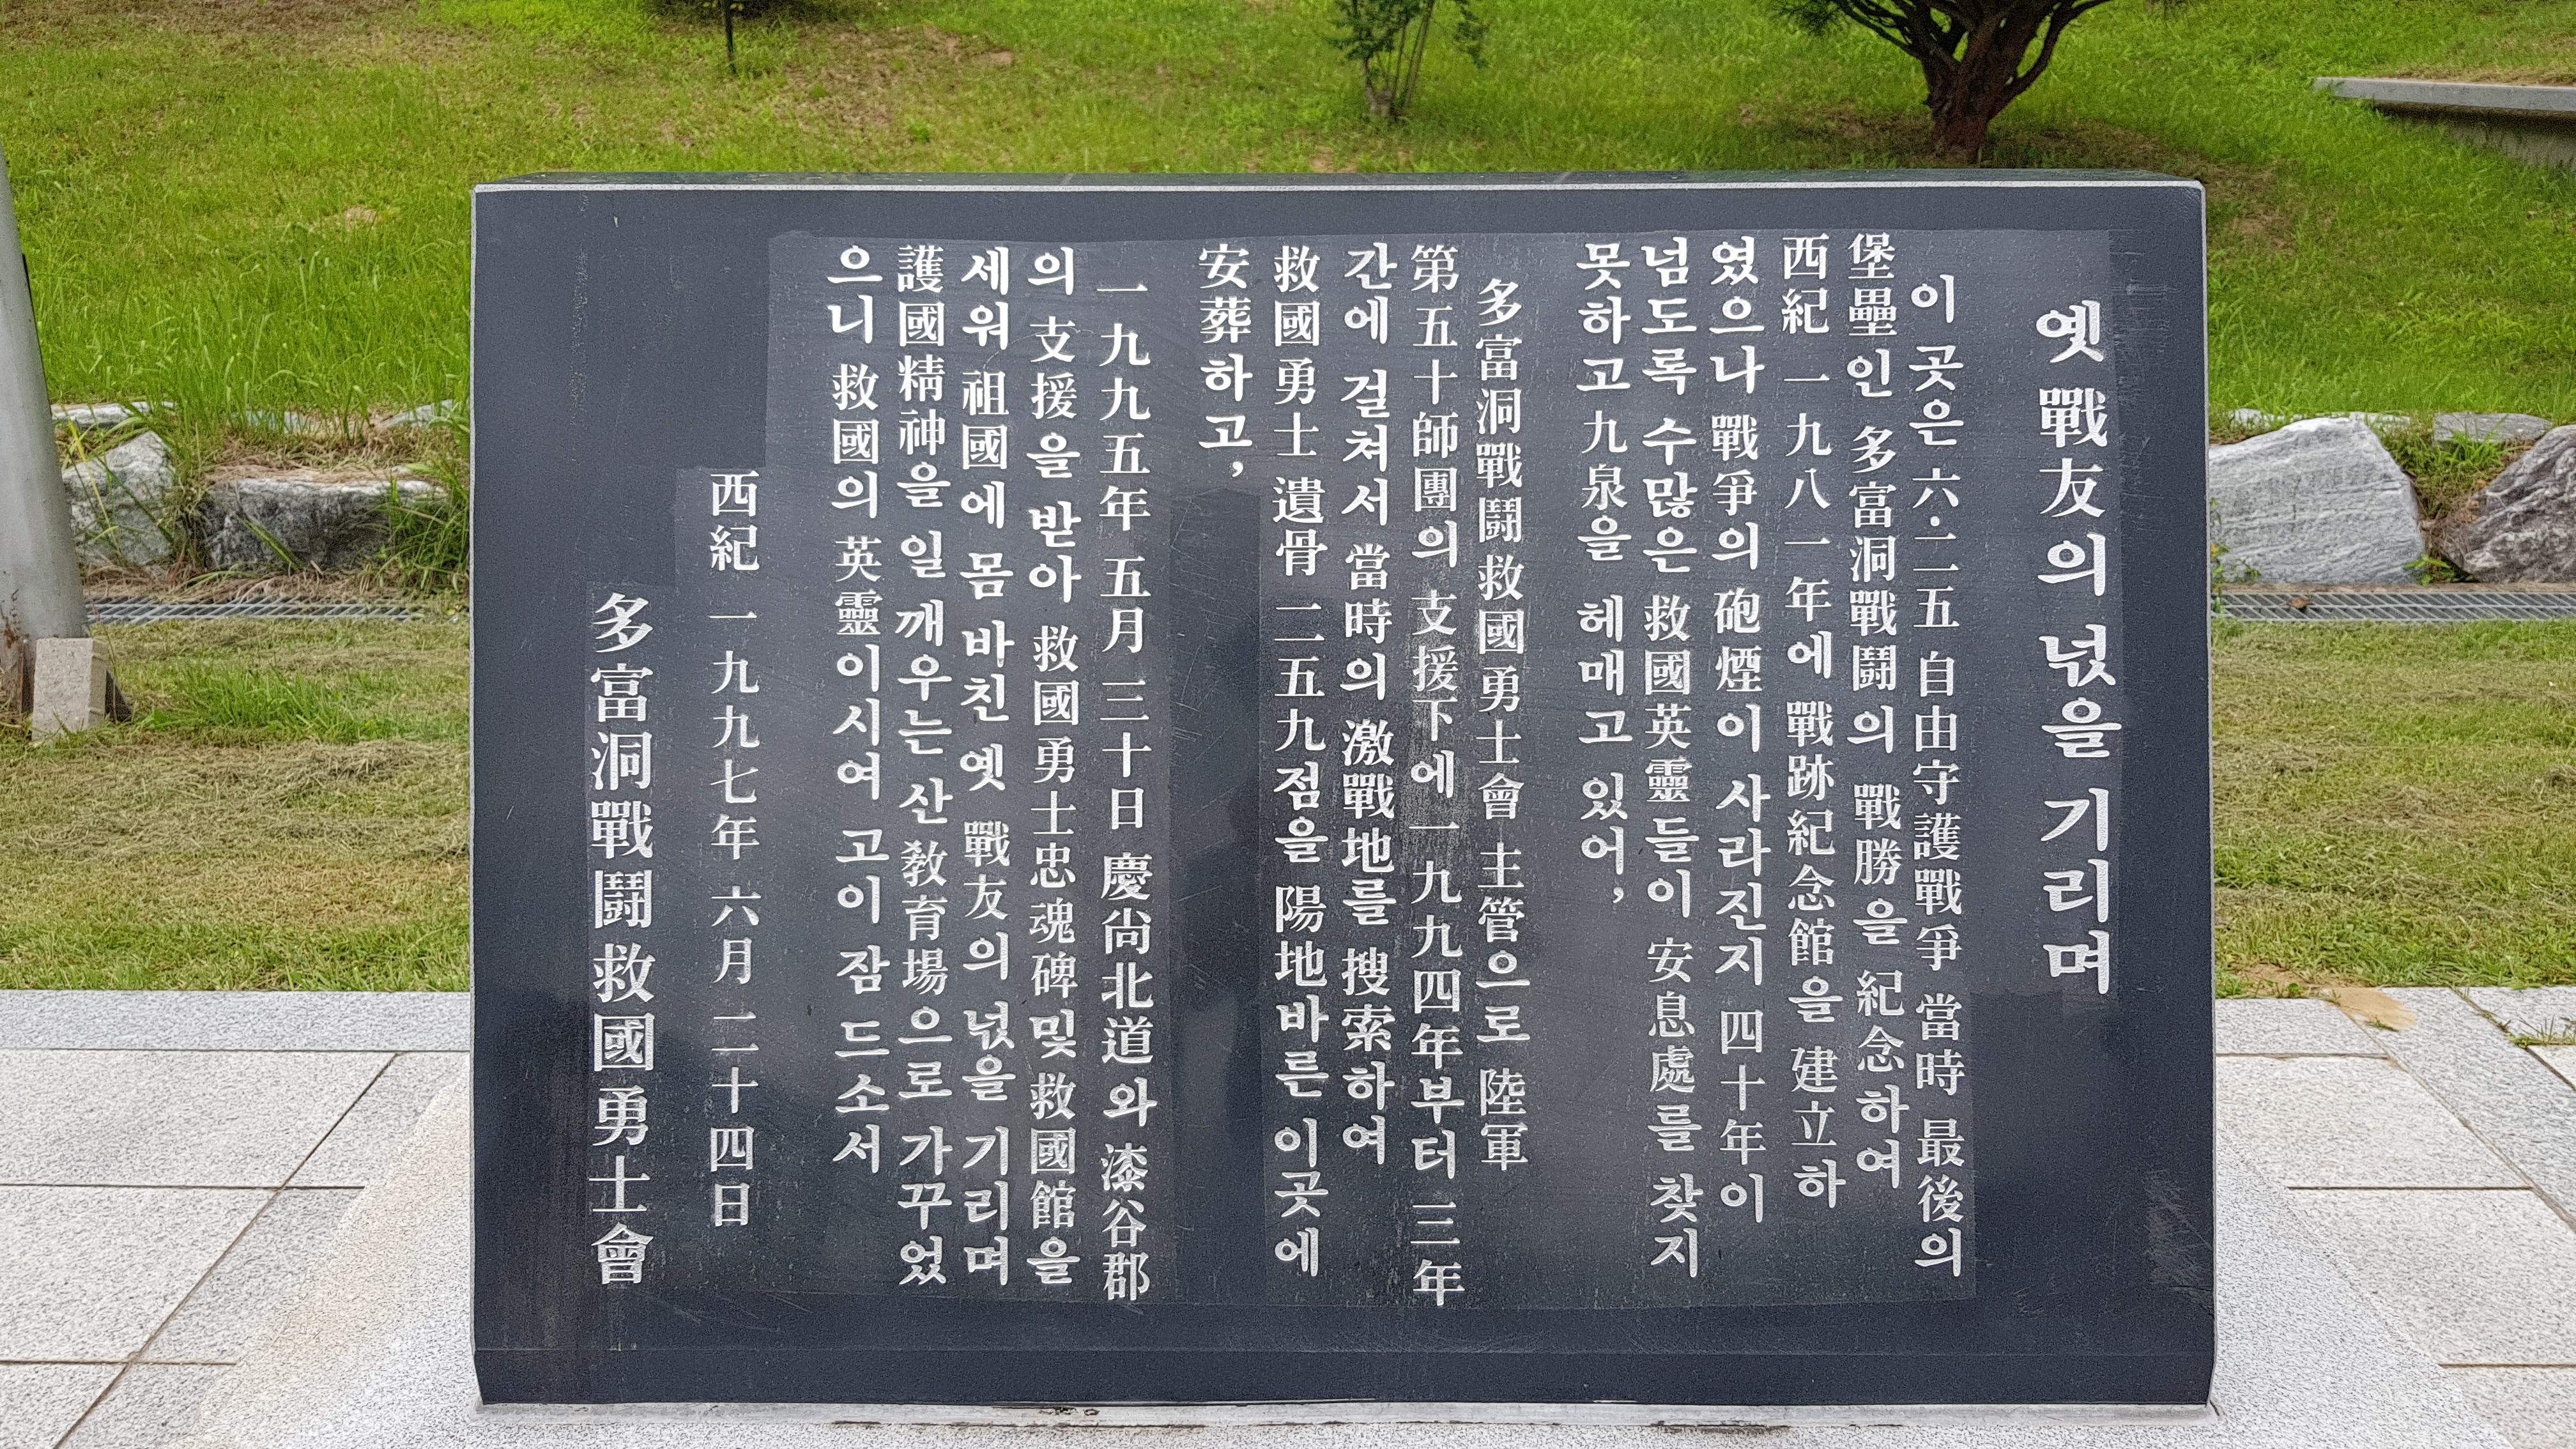 옛 戰友의 넋을 기리며
이 곳은 六·二五 自由守護戰爭 當時 最後의
堡壘인 多富洞戰鬪의 戰勝을 紀念하여
西紀 一九八一年에 戰跡紀念館을 建立하
였으나 戰爭의 砲煙이 사라진지 四十年이
넘도록 수많은 救國英靈들이 安息處를 찾지
못하고 九泉을 헤매고 있어,
多富洞戰鬪救國勇士會 主管으로 陸軍
第五十師團의 支援下에 一九九四年부터 三年
간에 걸쳐서 當時의 激戰地를 搜索하여
救國勇士 遺骨 二五九점을 陽地바른 이곳에
安葬하고,
一九九五年 五月 三十日 慶尙北道와 漆谷郡
의 支援을 받아 救國勇士忠魂碑 및 救國館을
세워 祖國에 몸 바친 옛 戰友의 넋을 기리며
護國精神을 일 깨우는 산 敎育場으로 가꾸었
으니 救國의 英靈이시여 고이 잠 드소서
西紀 一九九七年 六月 二十四日
多富洞戰鬪救國勇士會